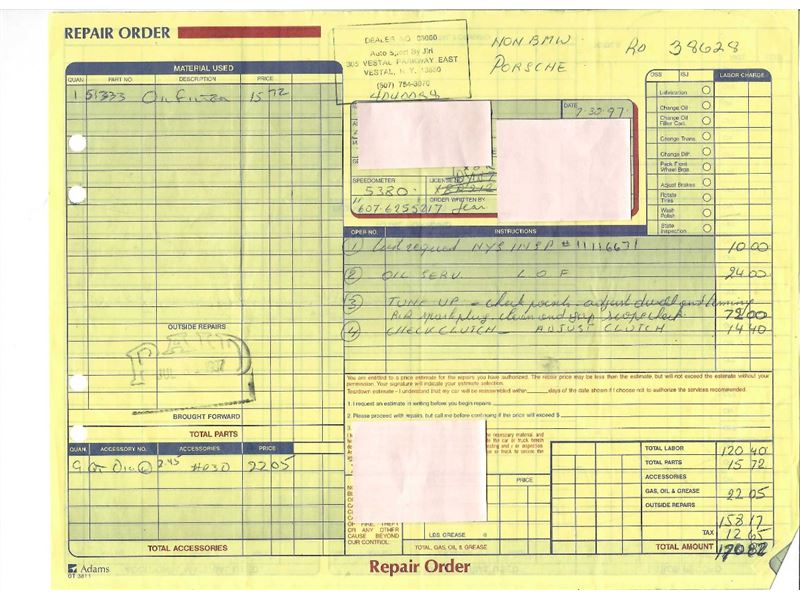 REPAIR ORDER
DEALER NO 03060
Auto Sport By Jim
305 VESTAL PARKWAY EAST
VESTAL, N.Y. 13850
(607) 754-3070
NON BMW
PORSCHE
RO 38628
MATERIAL USED
QUAN. PART NO DESCRIPTION PRICE
1 51333 15 72
OUTSIDE REPAIRS
PAID
JUL
BROUGHT FORWARD
TOTAL PARTS
QUAN. ACCESSORY NO. ACCESSORIES PRICE
9 QT OIL @ 2.45 22 05
TOTAL ACCESSORIES
Adams
GT 3811
DATE
7-30-97
SPEEDOMETER
5380
LICENSE
ORDER WRITTEN BY
607-6255217 Jean
LABOR CHARGE
Lubrication
Change Oil
Change Oil
Filter Cart.
Change Trans.
Change Diff.
Pack Front
Wheel Brgs.
Adjust Brakes
Rotate
Tires
Wash
Polish
State
Inspection
OPER NO. INSTRUCTIONS
1 required NYS INSP #11116671 10 00
2 OIL SERV. L O F 24 00
3 TUNE UP - check points - adjust dwell and timing
R&R spark plug, clean and gap, scope check 72 00
4 CHECK CLUTCH - ADJUST CLUTCH 14 40
You are entitled to a price estimate for the repairs you have authorized. The repair price may be less than the estimate, but will not exceed the estimate without your
permission. Your signature will indicate your estimate selection.
Teardown estimate - I understand that my car will be reassembled within days of the date shown if I choose not to authorize the services recommended.
1. I request an estimate in writing before you begin repairs
2. Please proceed with repairs, but call me before continuing if the price will exceed $
3.
necessary material, and
OR ANY OTHER
CAUSE BEYOND
OUR CONTROL.
PRICE
LBS. GREASE @
TOTAL, GAS, OIL & GREASE
TOTAL LABOR 120 40
TOTAL PARTS 15 72
ACCESSORIES
GAS, OIL & GREASE 22 05
OUTSIDE REPAIRS
158 17
TAX 12 65
TOTAL AMOUNT 170 82
Repair Order